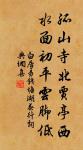 孤山寺北賈亭西
水面初平雲脚低
白居易錢塘湖春行